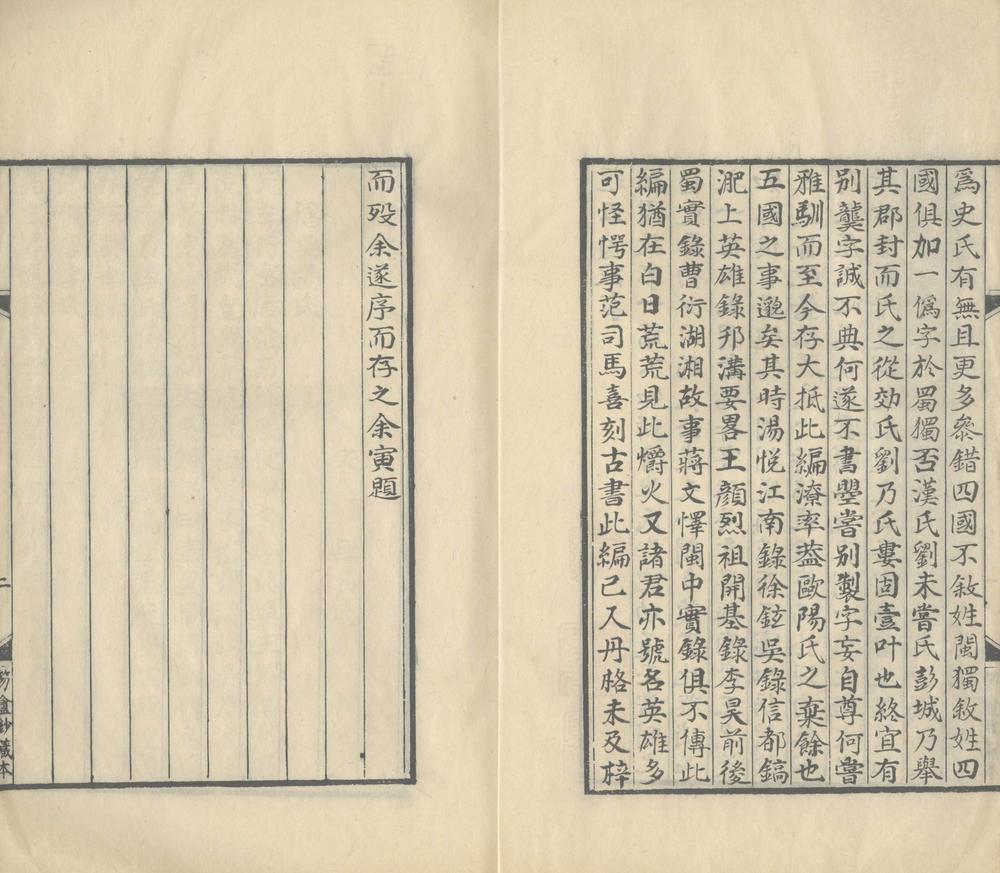 爲史氏有無且更多叅錯四國不敘姓閩獨敘姓四
國俱加一僞字於蜀獨否漢氏劉未嘗氏彭城乃舉
其郡封而氏之從効氏劉乃氏婁固壹叶也終宜有
別龑字誠不典何遂不書曌嘗別製字妄自尊何嘗
雅馴而至今存大抵此編潦率葢歐陽氏之棄餘也
五國之事邈矣其時湯悅江南錄徐鉉吳錄信都鎬
淝上英雄錄邗溝要畧王顏烈祖開基錄李昊前後
蜀實錄曹衍湖湘故事蔣文懌閩中實錄俱不傳此
編猶在白日荒荒見此爝火又諸君亦號名英雄多
可怪愕事范司馬喜刻古書此編已入丹格未及梓
而歿余遂序而存之余寅題
二
芴盦鈔藏本